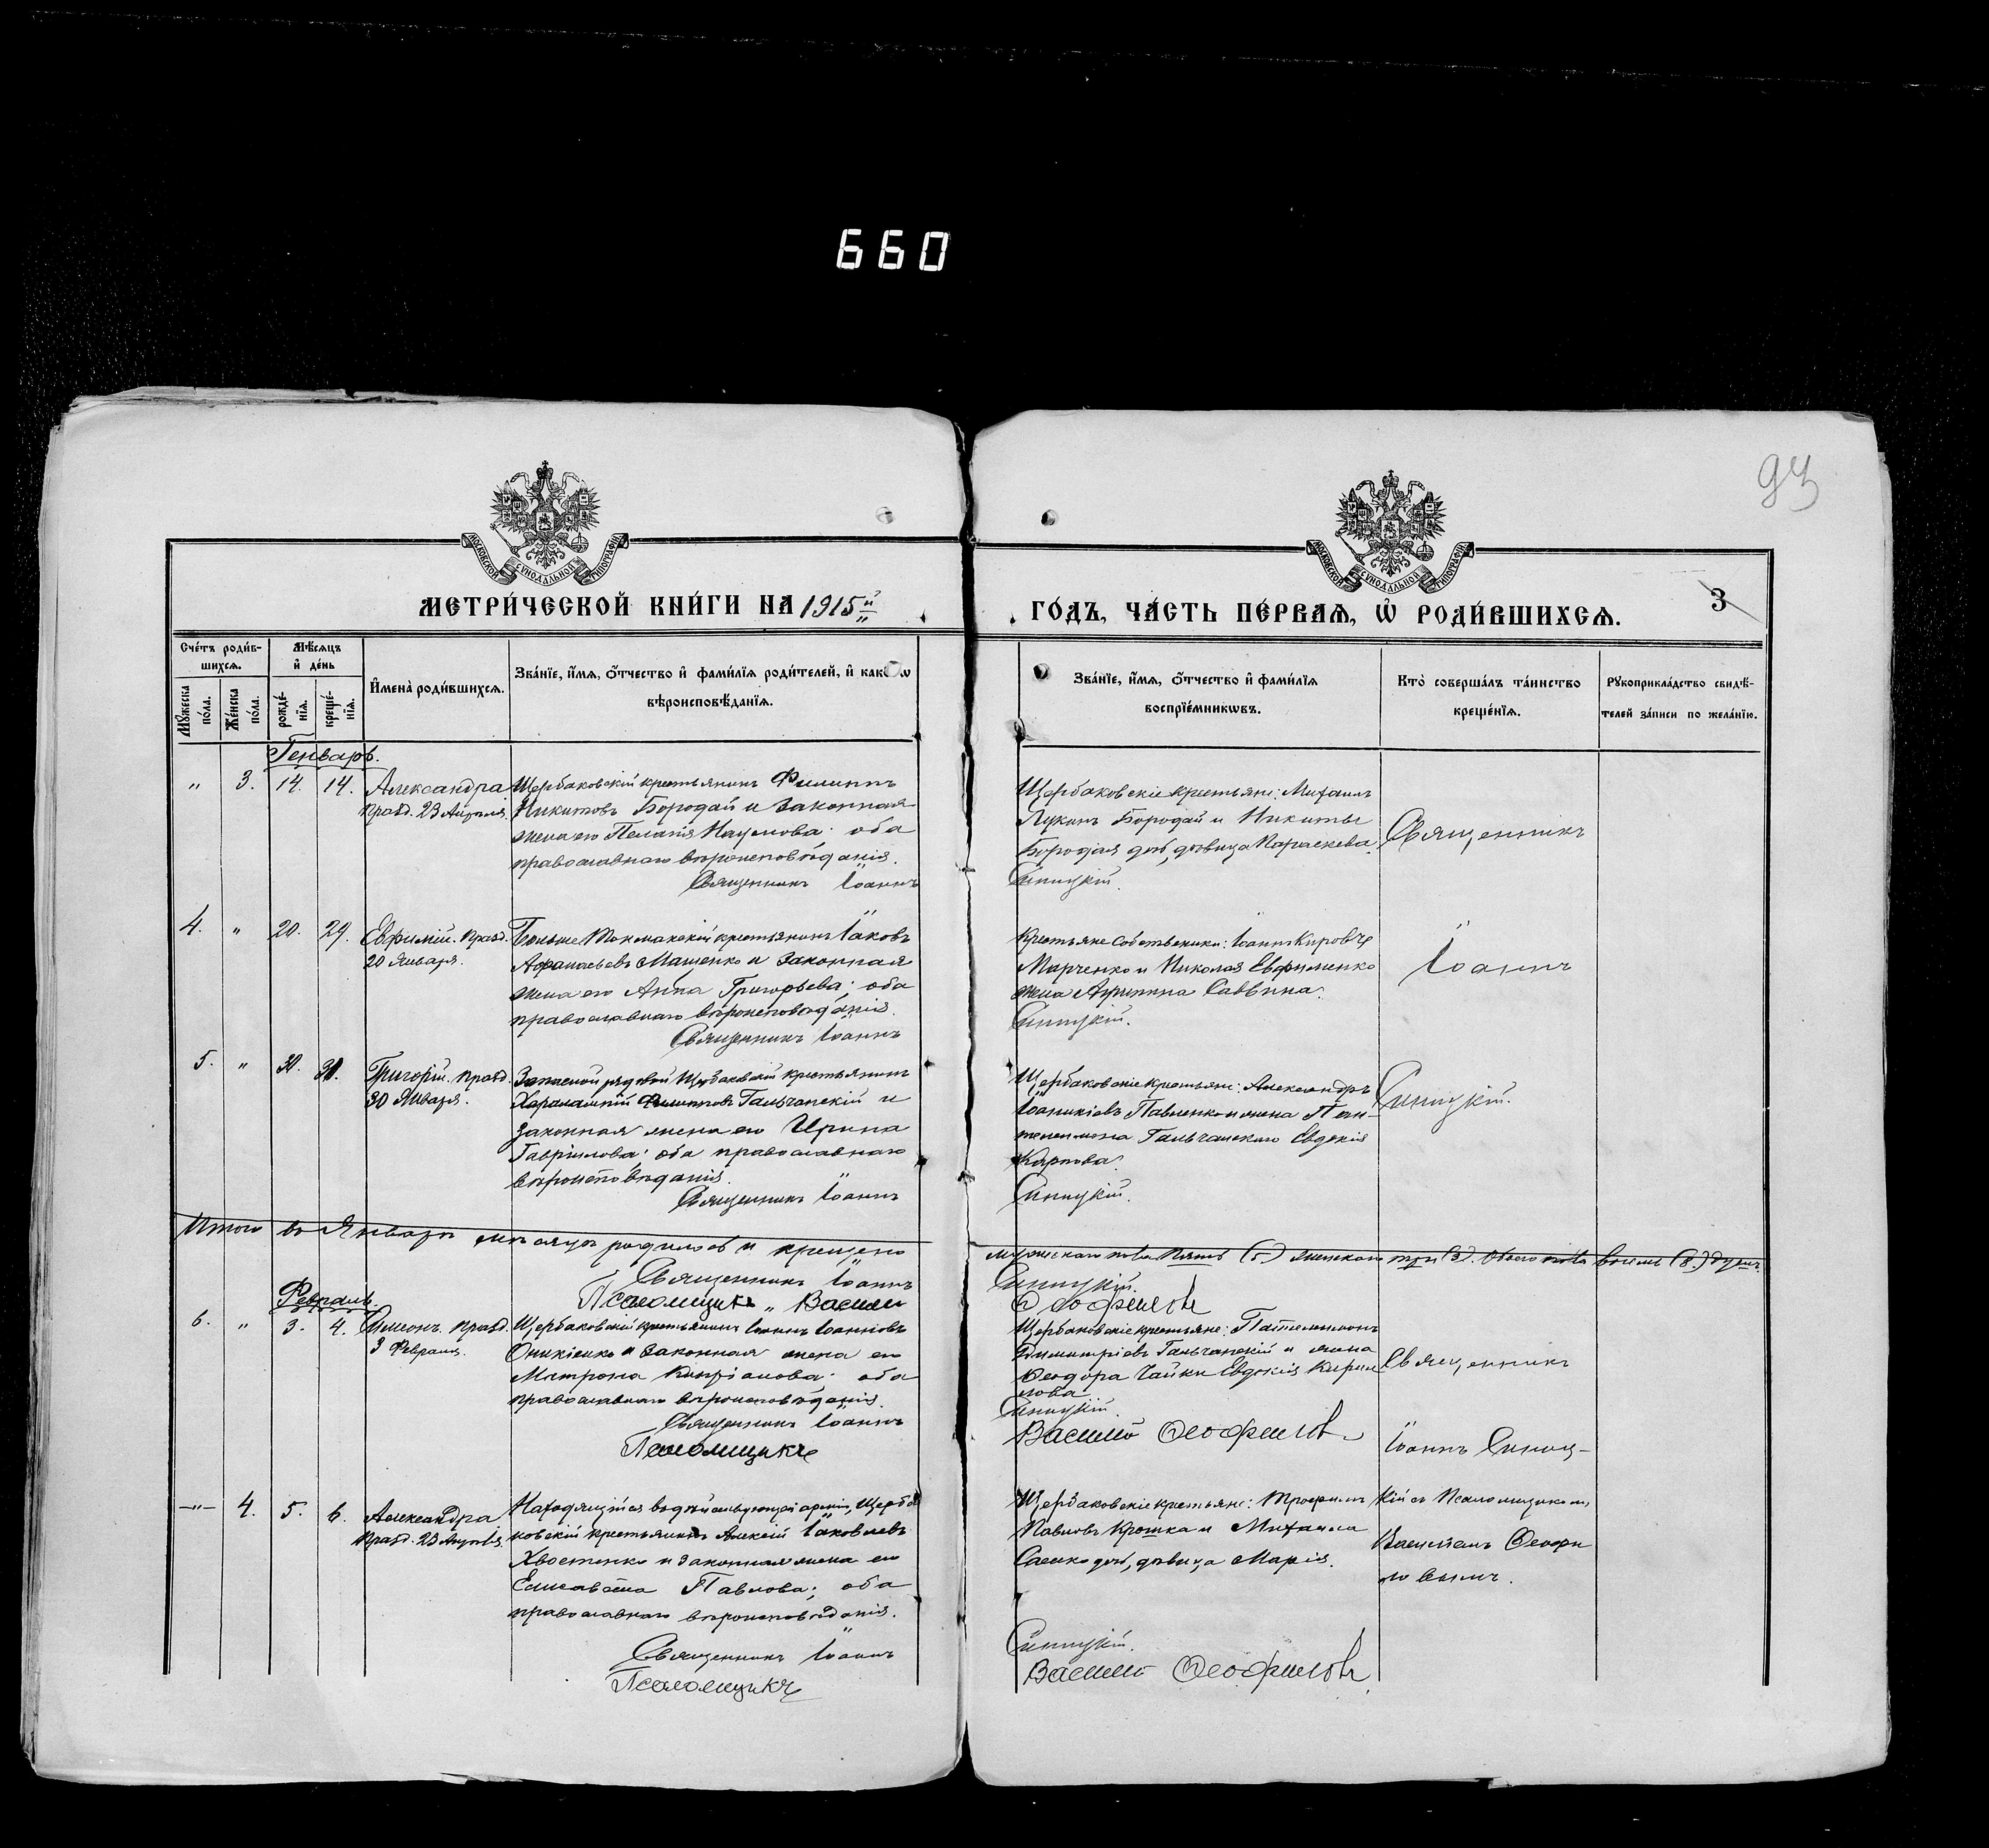 660
93
МОСКОВСКОЙ СѴНОДАЛЬНОЙ ТИПОГРАФІИ
МОСКОВСКОЙ СѴНОДАЛЬНОЙ ТИПОГРАФІИ
МЕТРИ́ЧЕСКОЙ КНИ́ГИ НА 1915й
ГО́ДЪ, ЧА́СТЬ ПЕ́РВАѦ, Ѡ҆ РОДИ́ВШИХСѦ.
3
Сче́тъ роди́в-
шихсѧ.
Мѣ́сѧцъ
и҆ де́нь
Мꙋ́жеска
по́ла.
Же́нска
по́ла.
рожде́-
нїѧ.
креще́-
нїѧ.
И҆мена̀ роди́вшихсѧ.
Зва́нїе, и҆́мѧ, ѻ҆́тчество и҆ фами́лїѧ роди́телей, и҆ како́гѡ
вѣроисповѣ́данїѧ.
Зва́нїе, и҆́мѧ, ѻ҆́тчество и҆ фами́лїѧ
воспрїе́мникѡвъ.
Кто̀ соверша́лъ та́инство
креще́нїѧ.
Рꙋкоприкла́дство свидѣ́-
телей за́писи по жела́нїю.
Генварь.
" 3. 14. 14. Александра
празд. 23 Апрѣля.
Щербаковскій крестьянинъ Филиппъ
Никитовъ Бородай и законная
жена его Пелагія Наумова; оба
православнаго вѣроисповѣданія.
Священникъ Іоаннъ
Щербаковскіе крестьяне: Михаилъ
Лукинъ Бородай и Никиты
Бородая дочь, дѣвица Параскева.
Синицкій.
Священникъ
4. " 20. 29. Евѳимій. Празд.
20 Января.
Больше Токмакскій крестьянинъ Іаковъ
Аѳанасьевъ Мащенко и законная
жена его Анна Григорьева; оба
православнаго вѣроисповѣданія.
Священникъ Іоаннъ
Крестьяне собственики: Іоаннъ Кировъ
Марченко и Николая Евфименко
жена Агрипина Саввина.
Синицкій.
Іоаннъ
5. " 30. 31. Григорій. Празд.
30 Января.
Запасной рядовой Щербаковскій крестьянинъ
Харалампій Филиповъ Гальчанскій и
законная жена его Ирина
Гавріилова; оба православнаго
вѣроисповѣданія.
Священникъ Іоаннъ
Щербаковскіе крестьяне: Александръ
Іоаникіевъ Павленко и жена Пан-
телеимона Гальчанскаго Евдокія
Карпова.
Синицкій.
Синицкій.
Итого въ Январѣ мѣсяцѣ родилось и крещено
мужескаго пола пять (5) женскаго три (3). Обоего пола восемь (8) душъ.
Священникъ Іоаннъ
Синицкій.
Псаломщикъ Василій
Ѳеофиловъ
Февраль.
6. " 3. 4. Симеонъ. Празд.
3 Февраля.
Щербаковскій крестьянинъ Іоаннъ Іоанновъ
Оникіенко и законная жена его
Матрона Кипріанова; оба
православнаго вѣроисповѣданія.
Священникъ Іоаннъ
Псаломщикъ
Щербаковскіе крестьяне: Пантелеимонъ
Димитріевъ Гальчанскій и жена
Ѳеодора Чайки Евдокія Кирил
лова
Синицкій.
Василій Ѳеофиловъ
Священникъ
Іоаннъ Синиц-
—"— 4. 5. 6. Александра
празд. 23 Апрѣля.
Находящійся въ дѣйствующей арміи, Щерба
ковскій крестьянинъ Алексій Іаковлевъ
Хвостенко и законная жена его
Елисавета Павлова; оба
православнаго вѣроисповѣданія.
Священникъ Іоаннъ
Псаломщикъ
Щербаковскіе крестьяне: Трофимъ
Павловъ Крошка и Михаила
Саенко дочь, дѣвица Марія.
Синицкій.
Василій Ѳеофиловъ
кій съ Псаломщикомъ
Василіемъ Ѳеофи
ловымъ.